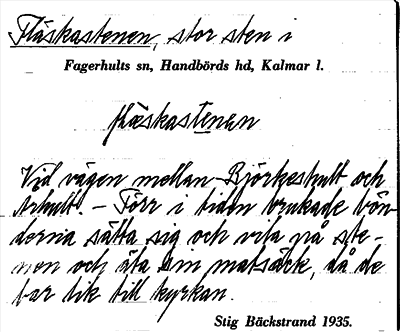 Fläskastenen, stor sten i
Fagerhults sn, Handbörds hd, Kalmar l.
fläskastenen
Vid vägen mellan Björkeshult och
Arhult. – Förr i tiden brukade bön-
derna sätta sig och vila på ste-
nen och äta sin matsäck, då de
bar lik till kyrkan.
Stig Bäckstrand 1935.